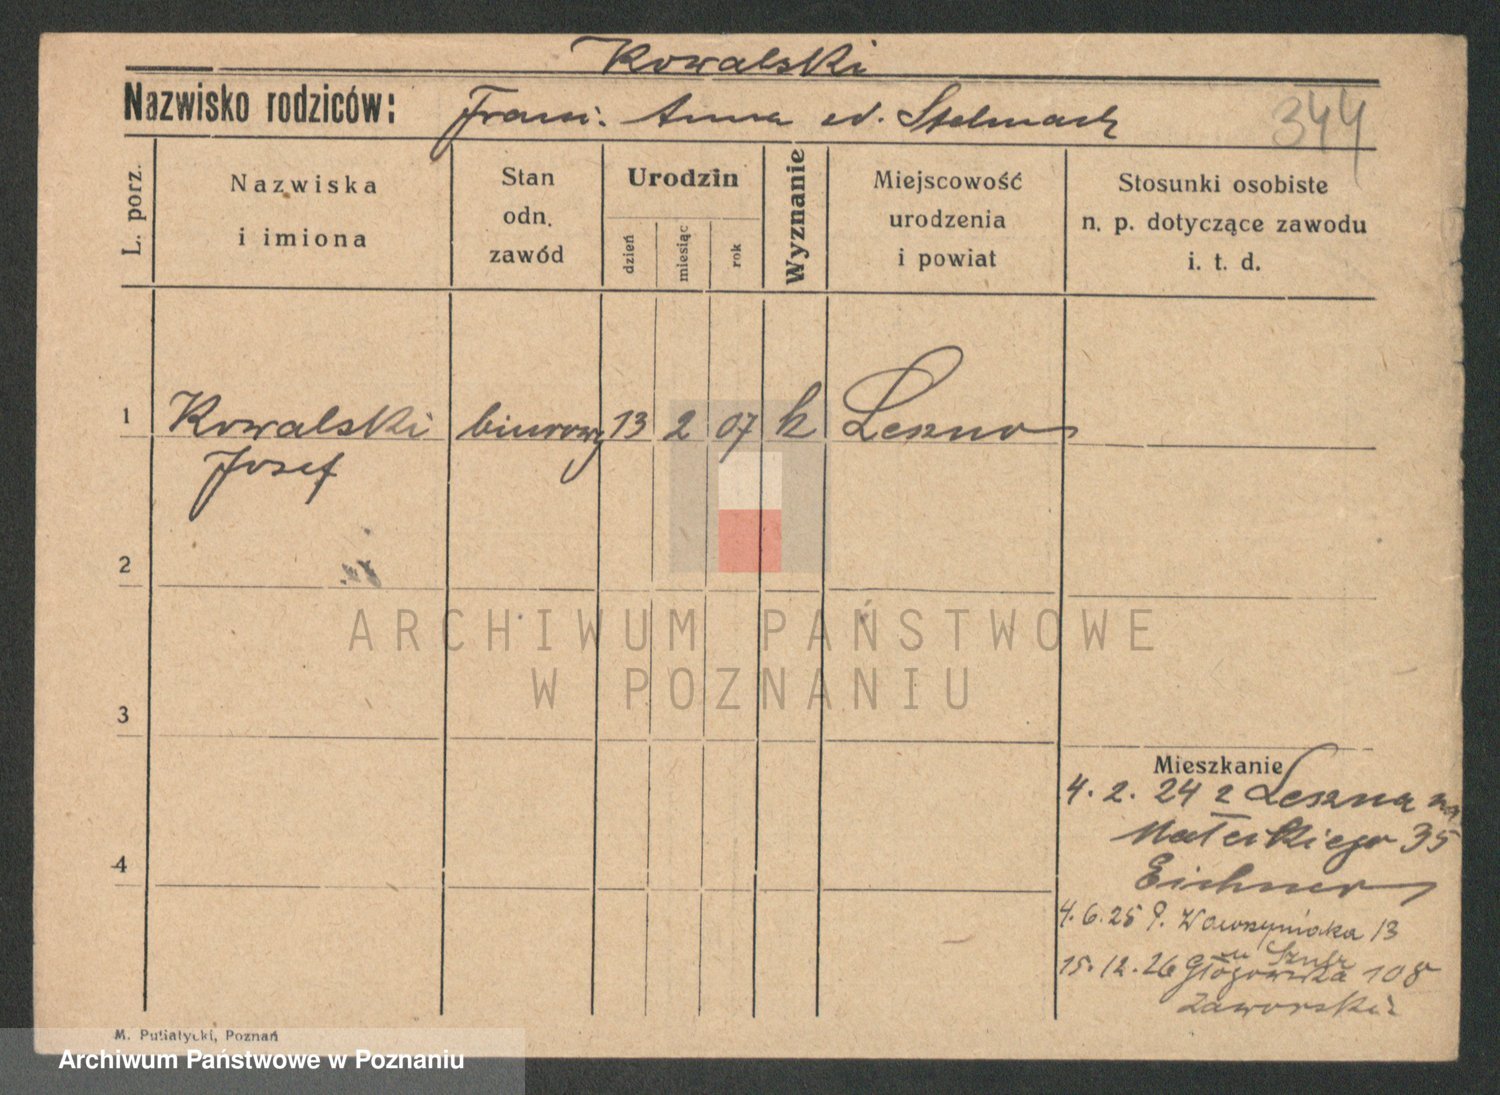 Kowalski
Nazwisko rodziców: Franc. Anna ed. Stelmach
344
L. porz.
Nazwiska
i imiona
Stan
odn.
zawód
Urodzin
dzień
miesiąc
rok
Wyznanie
Miejscowość
urodzenia
i powiat
Stosunki osobiste
n. p. dotyczące zawodu
i. t. d.
1 Kowalski biurowy 13 2 07 k Leszno
Josef
2
3
4
Mieszkanie
4. 2. 24 z Leszna na
Matejkiego 35
Eichner
4. 6. 25 P. Wawrzyniaka 13
u
15. 12. 26 Głogowska 108
Zaworski
M. Putiatycki, Poznań
ARCHIWUM PAŃSTWOWE
W POZNANIU
Archiwum Państwowe w Poznaniu